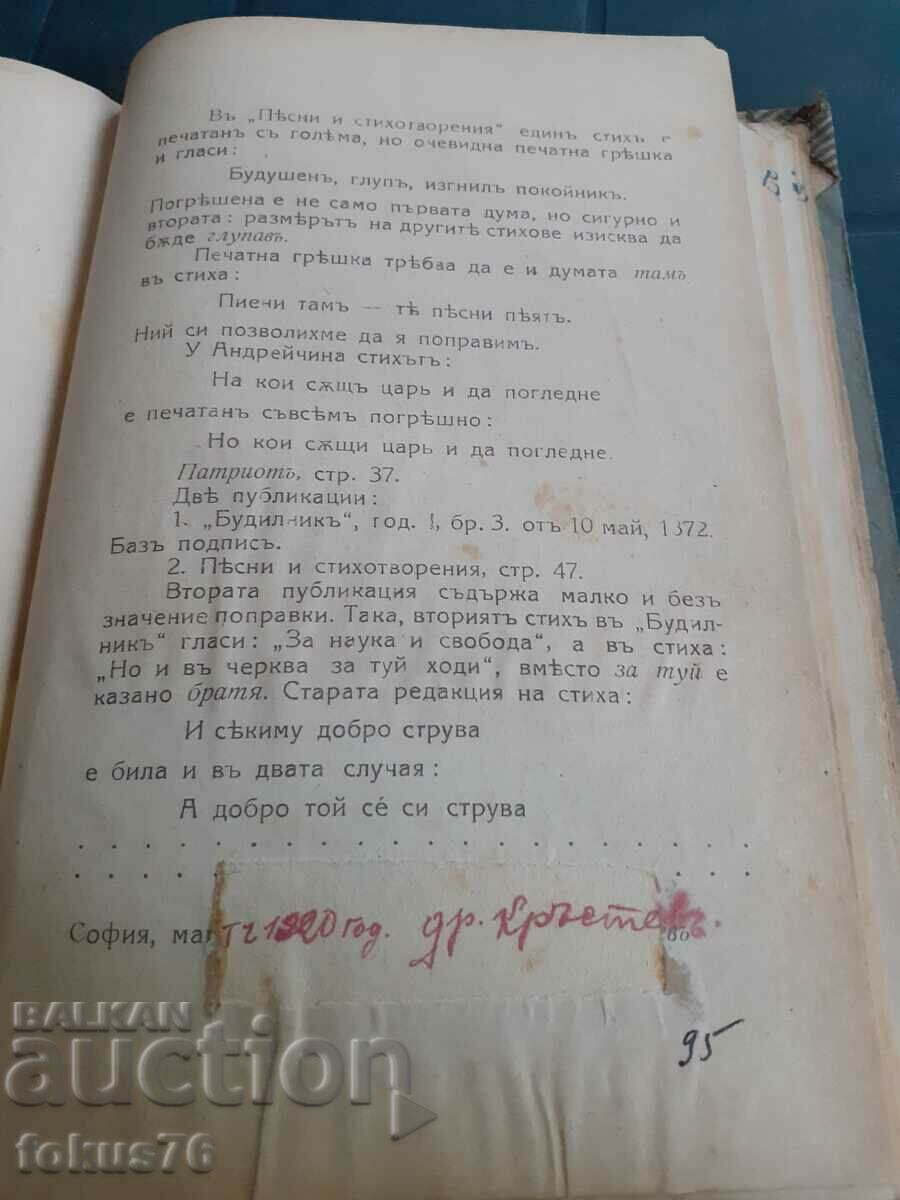 Въ „Пѣсни и стихотворения“ единъ стихъ е
печатанъ съ голѣма, но очевидна печатна грѣшка
и гласи:
Будушенъ, глупъ, изгнилъ покойник.
Погрѣшена е не само първата дума, но сигурно и
втората: размѣрътъ на другитѣ стихове изисква да
бѫде глупавъ.
Печатна грѣшка трѣбва да е и думата тамъ
въ стиха:
Пиени тамъ — тѣ пѣсни пѣятъ.
Ний си позволихме да я поправимъ.
У Андрейчина стихътъ:
На кои сѫщъ царь и да погледне
е печатанъ съвсѣмъ погрѣшно:
Но кои сѫщи царь и да погледне.
Патриотъ, стр. 37.
Двѣ публикации:
1. „Будилникъ“, год. I, бр. 3. отъ 10 май, 1872.
Базъ подпись.
2. Пѣсни и стихотворения, стр. 47.
Втората публикация съдържа малко и безъ
значение поправки. Така, вториятъ стихъ въ „Будил-
никъ“ гласи: „За наука и свобода“, а въ стиха:
„Но и въ черква за туй ходи“, вмѣсто за туй е
казано братя. Старата редакция на стиха:
И сѣкиму добро струва
е била и въ двата случая:
А добро той сé си струва
София, мартъ 1920 год. др. Кръстевъ.
95
BALKAN
auction
fokus76